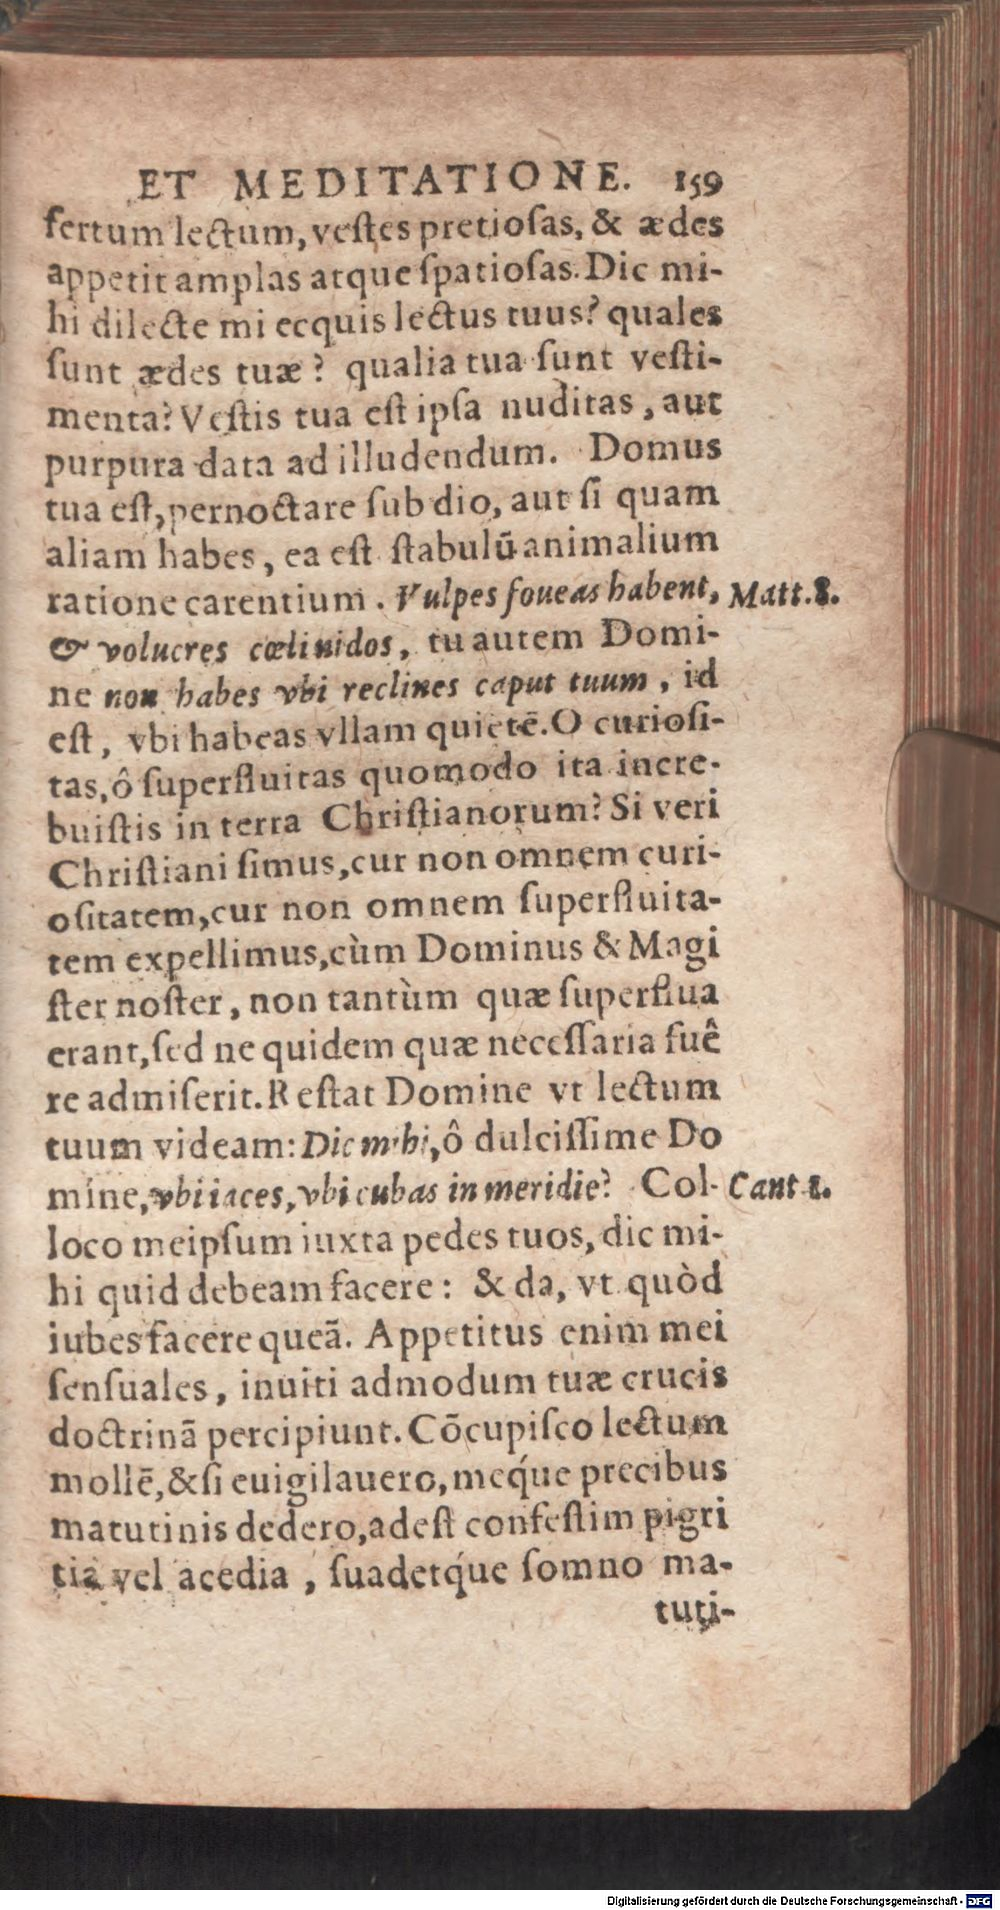 ET MEDITATIONE. 159
fertum lectum, veſtes pretioſas, & ædes
appetit amplas atque ſpatioſas. Dic mi-
hi dilecte mi ecquis lectus tuus? quales
ſunt ædes tuæ? qualia tua ſunt veſti-
menta? Veſtis tua eſt ipſa nuditas, aut
purpura data ad illudendum. Domus
tua eſt, pernoctare ſub dio, aut ſi quam
aliam habes, ea eſt ſtabulū animalium
ratione carentium. Vulpes foueas habent, Matt. 8.
& volucres cœli nidos, tu autem Domi-
ne non habes vbi reclines caput tuum, id
eſt, vbi habeas vllam quietē. O curioſi-
tas, ô ſuperfluitas quomodo ita incre-
buiſtis in terra Chriſtianorum? Si veri
Chriſtiani ſimus, cur non omnem curi-
oſitatem, cur non omnem ſuperfluita-
tem expellimus, cùm Dominus & Magi
ſter noſter, non tantùm quæ ſuperflua
erant, ſed ne quidem quæ neceſſaria fuê
re admiſerit. Reſtat Domine vt lectum
tuum videam: Dic mihi, ô dulciſſime Do
mine, vbi iaces, vbi cubas in meridie? Col- Cant 1.
loco meipſum iuxta pedes tuos, dic mi-
hi quid debeam facere: & da, vt quòd
iubes facere queā. Appetitus enim mei
ſenſuales, inuiti admodum tuæ crucis
doctrinā percipiunt. Cōcupiſco lectum
mollē, & ſi euigilauero, meq́ue precibus
matutinis dedero, adeſt confeſtim pigri
tia vel acedia, ſuadetq́ue ſomno ma-
tuti-
Digitalisierung gefördert durch die Deutsche Forschungsgemeinschaft - DFG